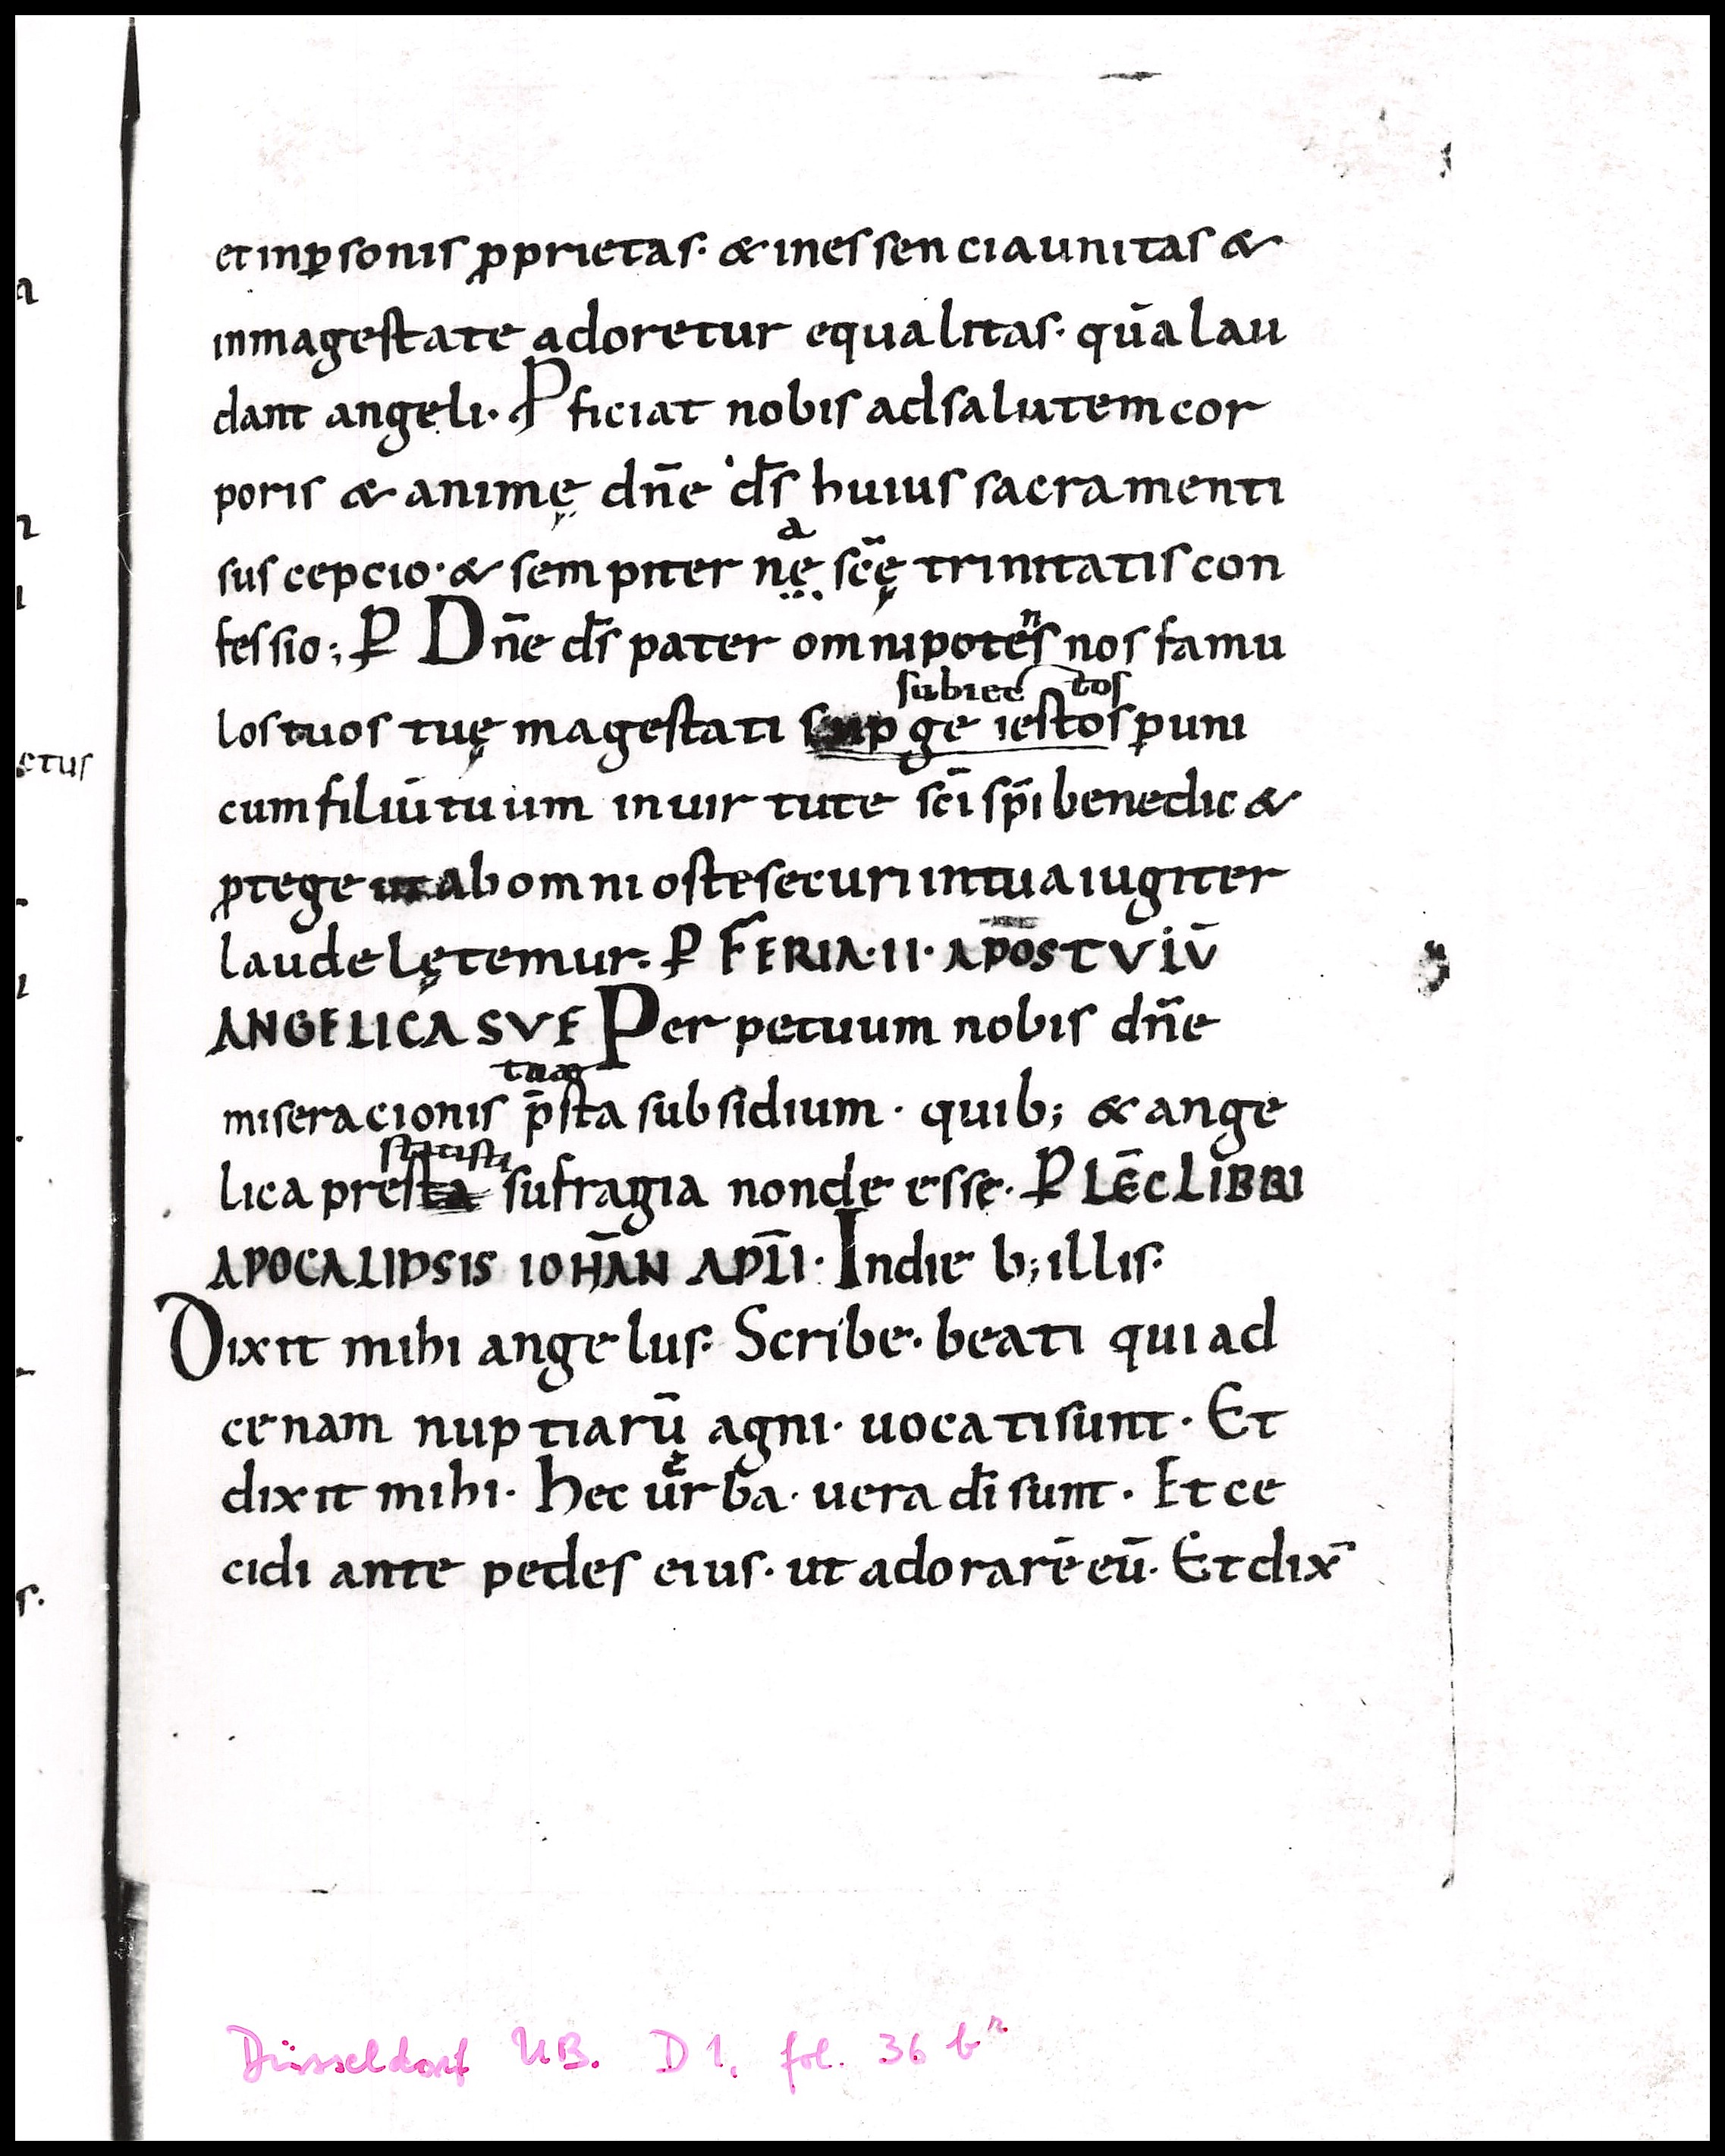 et inꝑsonis ꝓprietas· & inessencia unitas &
inmagestate adoretur equalitas· quā lau
dant angeli· Ꝓficiat nobis adsalutem cor
poris & animę dn̄e d̄s huius sacramenti
suscepcio· & sempiter nę sc̄ę trinitatis con
a
fessio; P Dn̄e d̄s pater omnipotēs nos famu
n
los tuos tuę magestati ge iestos ꝑ uni
subiec tos
cum filiū tuum in uirtute sc̄i sp̄i benedic &
ꝓtege ut ab omni oste securi in tua iugiter
laude lętemur· P FERIA· II· A POST VIŪ
ANGELICA SVF Perpetuum nobis dn̄e
miseracionis p̄sta subsidium· quib; & ange
tuae
lica presta sufragia non de esse· P LEC̄ LIBRI
APOCALIPSIS IOHAN̄ APLI̅· In die b; illis·
Dixit mihi angelus· Scribe· beati qui ad
cenam nuptiarū agni· uocati sunt· Et
dixit mihi· hec ūrba· uera dī sunt· Et ce
e
cidi ante pedes eius· ut adorarē eū· Et dix̄
ctus
Düsseldorf UB. D 1, fol. 36 bʳ